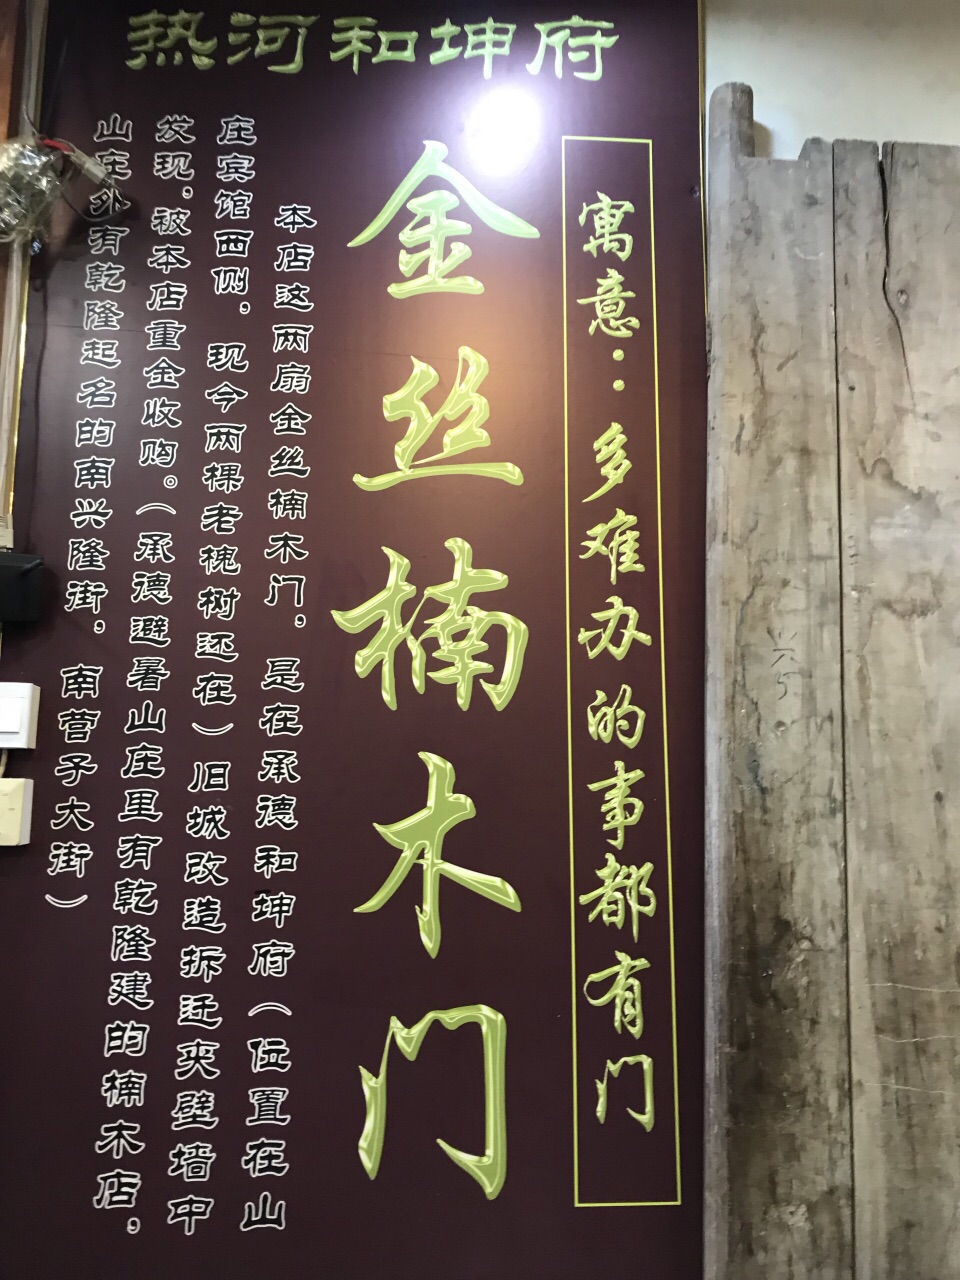 热河和坤府
寓意：多难办的事都有门
金丝楠木门
本店这两扇金丝楠木门，是在承德和坤府（位置在山
庄宾馆西侧，现今两棵老槐树还在）旧城改造拆迁夹壁墙中
发现，被本店重金收购。（承德避暑山庄里有乾隆建的楠木店，
山庄外有乾隆起名的南兴隆街，南营子大街）